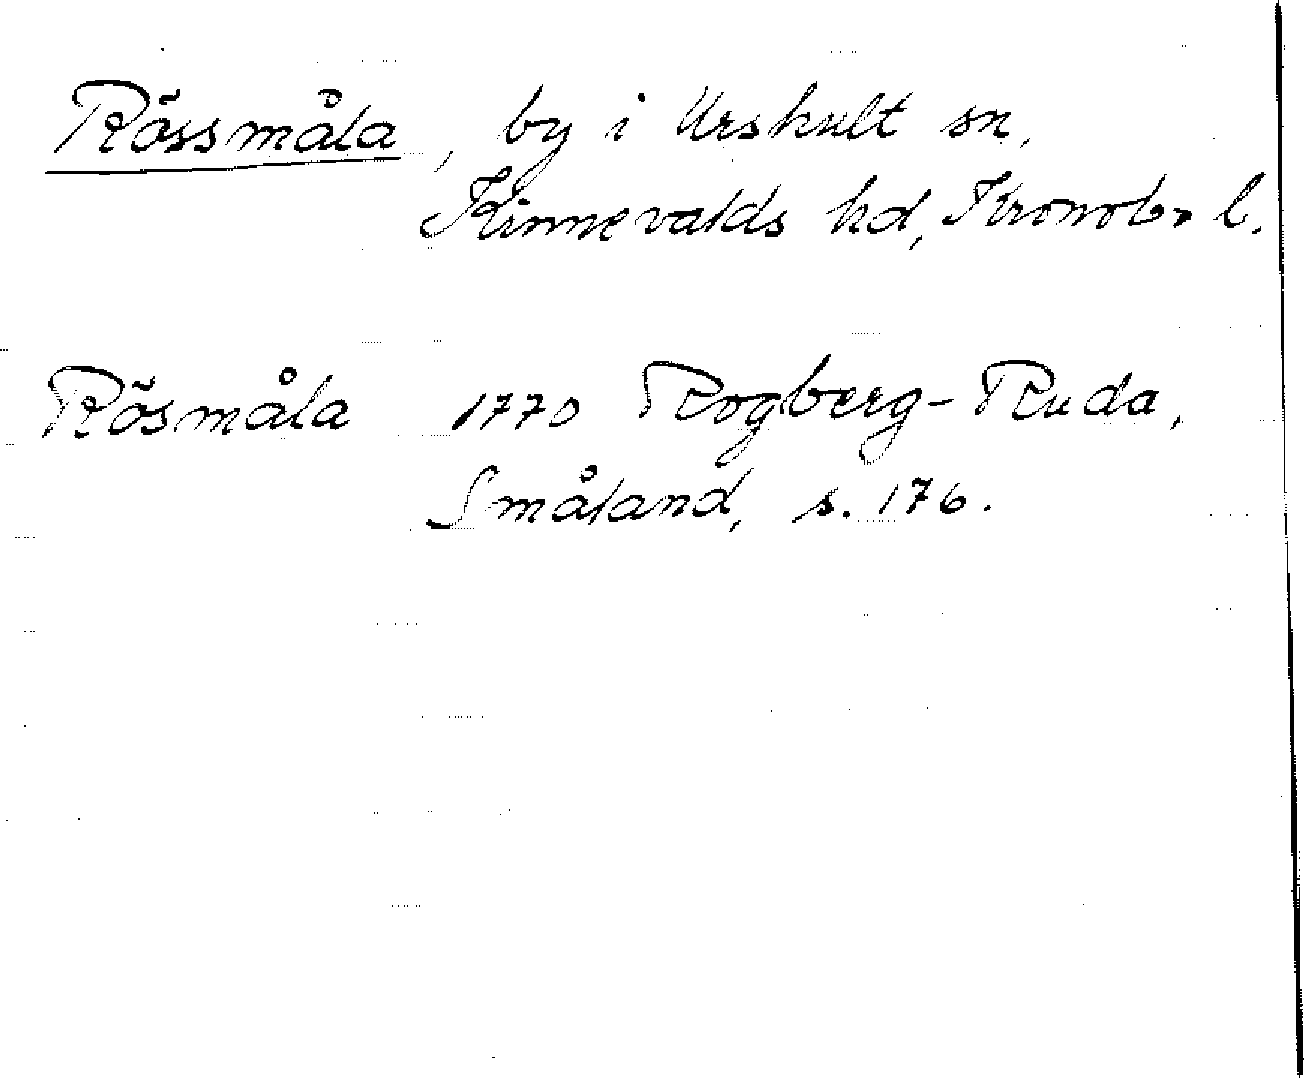 Rössmåla, by i Urshult sn,
Kinnevalds hd, Kronob. l.
Rösmåla 1770 Rogberg-Ruda,
Småland, s. 176.